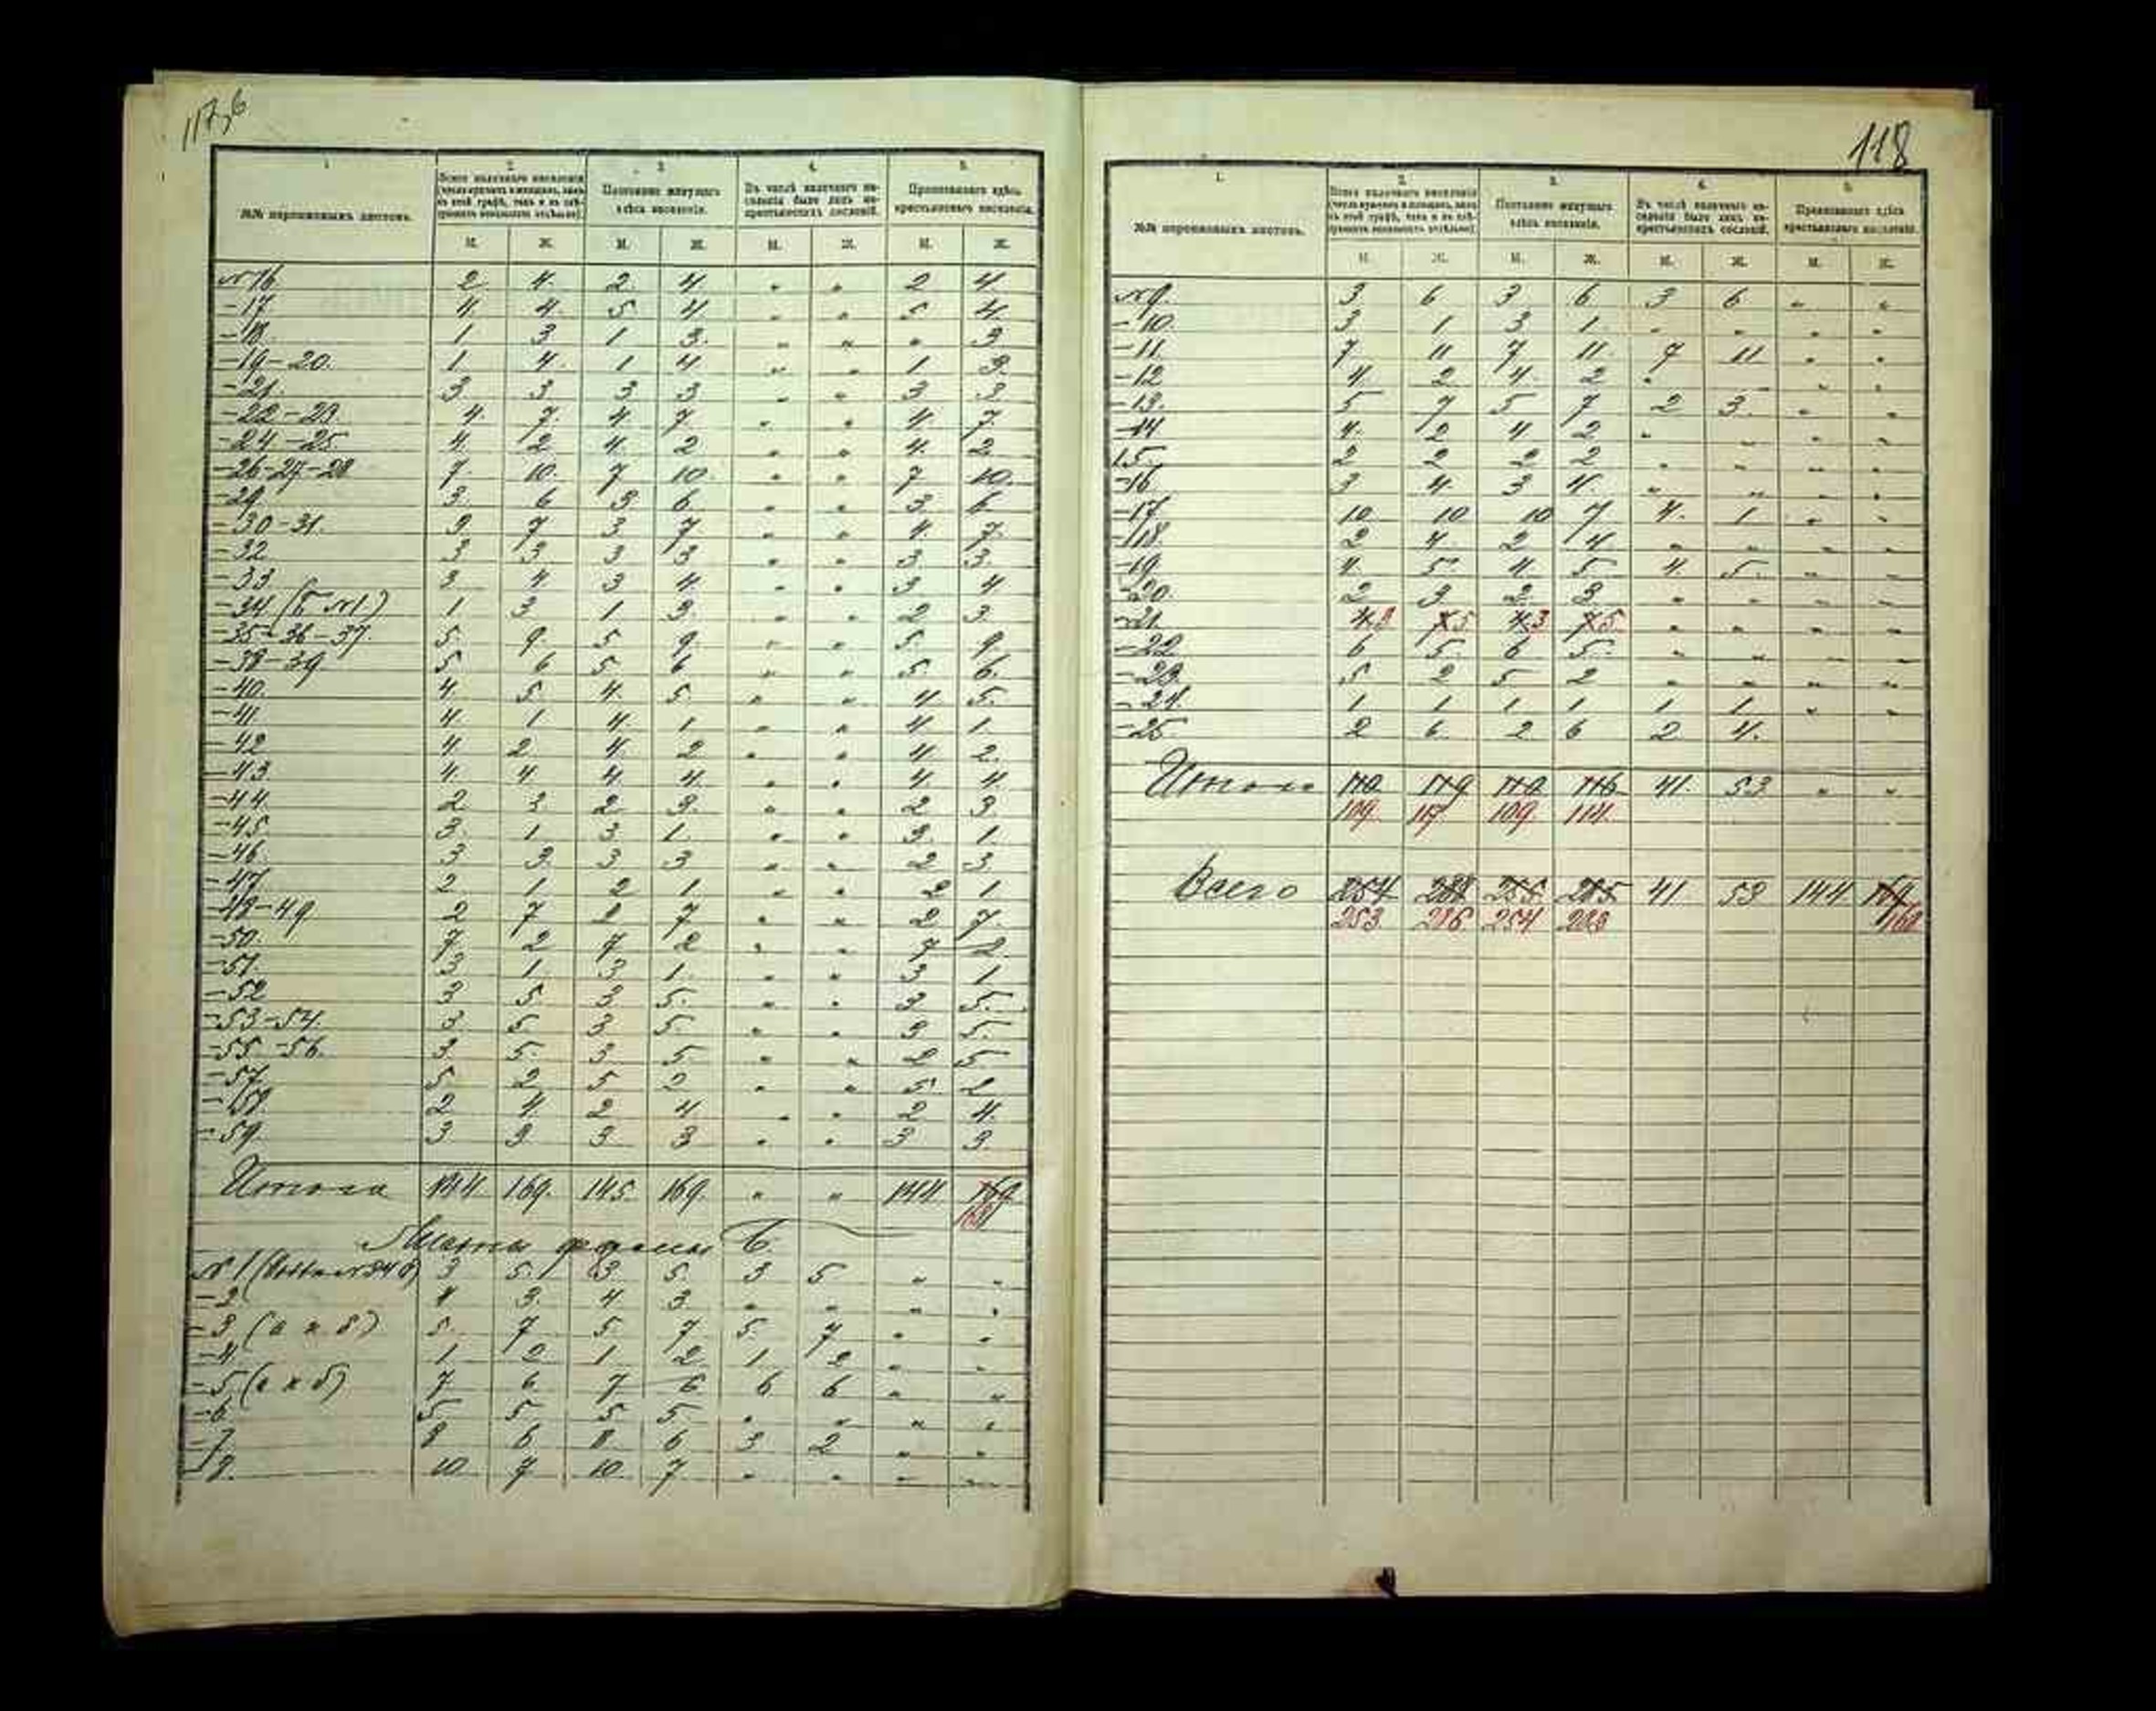 117,б
1. 2. 3. 4. 5.
№№ переписныхъ листовъ. Всего наличнаго населенія Постоянно живущаго здѣсь населенія. Въ числѣ наличнаго населенія было лицъ некрестьянскихъ сословій. Приписаннаго здѣсь крестьянскаго населенія.
М. Ж. М. Ж. М. Ж. М. Ж.
№ 16. 2. 4. 2. 4. " " 2 4.
-17. 4. 4. 5. 4. " " 5. 4.
-18. 1 3 1 3. " " " 3
-19-20. 1 4. 1 4 " " 1 3.
-21. 3. 3 3 3 " " 3 3
-22-23. 4. 7. 4 7. " " 4. 7.
-24-25 4. 2 4. 2 " " 4. 2
-26-27-28 7. 10. 7 10. " " 7 10.
-29. 3. 6 3. 6. " " 3 6
-30-31. 3 7 3 7. " " 4. 7.
-32. 3 3. 3 3 " " 3. 3.
-33 3 4 3 4. " " 3 4
-34. (Б №1.) 1 3 1 3. " " 2 3.
-35-36-37. 5. 9. 5 9. " " 5. 9
-38-39 5 6 5 6 " " 5. 6.
-40. 4. 5. 4. 5. " " 4 5.
-41. 4. 1 4. 1. " " 4. 1.
-42 4 2 4. 2 " " 4 2.
-43. 4. 4. 4. 4. " " 4. 4.
-44. 2 3. 2 3. " " 2 3.
-45. 3. 1. 3. 1. " " 3. 1.
-46. 3 3. 3 3 " " 2 3.
-47. 2 1. 2 1. " " 2 1
-48-49. 2 7 2 7. " " 2 7.
-50. 7. 2 7 2 " " 7 2.
-51. 3. 1. 3 1. " " 3 1
-52 3 5. 3. 5. " " 3 5.
-53-54. 3. 5. 3. 5. " " 3 5.
-55-56. 3. 5. 3 5. " " 2 5
-57. 5. 2 5 2 " " 5. 2
-58. 2 4. 2 4 " " 2 4.
-59. 3 3. 3 3 " " 3 3.
Итого 144. 169. 145. 169. " " 144. 169.
168
Листы формы Б.
№ 1 3 5. 3. 5. 3 5 " "
-2. 4 3. 4 3. " " " "
-3. (а и б) 5. 7 5. 7 5. 7 " "
-4. 1 2 1 2 1 2 " "
-5. (а и б) 7 6 7 6 6 6 " "
-6. 5 5. 5. 5. " " " "
-7. 8 6 8 6 3 2 " "
-8. 10. 7 10. 7. " " " "
118
1. 2. 3. 4. 5.
№№ переписныхъ листовъ. Всего наличнаго населенія Постоянно живущаго здѣсь населенія. Въ числѣ наличнаго населенія было лицъ некрестьянскихъ сословій. Приписаннаго здѣсь крестьянскаго населенія.
М. Ж. М. Ж. М. Ж. М. Ж.
№ 9. 3 6 3 6 3 6 " "
-10. 3 1 3 1. " " " "
-11. 7 11 7 11. 7 11 " "
-12 4. 2 4. 2 " " "
-13. 5 7 5 7 2 3. " "
-14 4. 2 4 2 " " " "
15. 2 2 2 2 " " " "
-16 3 4. 3 4. " " " "
-17. 10 10 10 7 4. 1 " "
-18. 2 4. 2 4 " " " "
-19. 4. 5 4. 5 4. 5. " "
-20. 2 3. 2 3 " " " "
-21 4.3 7.5 4.3 7.5 " " " "
-22. 6 5. 6 5. " " " "
-23. 5 2 5 2 " " " "
-24. 1 1 1 1 1 1 " "
-25 2 6. 2 6 2 4.
Итого 110. 119 110 116 41. 53 " "
109. 117 109. 114.
Всего 254 288 255. 285. 41 53 144. 169
253 286 254 283 168